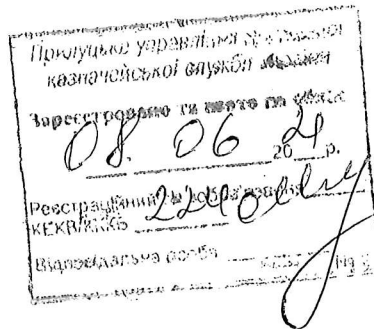 Прилуцьке управління
казначейської служби України
Зареєстровано та взято на облік
08. 06 2021 р.
Реєстраційний № зобов'язання
КЕКВ/ККБ 2240
Відповідальна особа